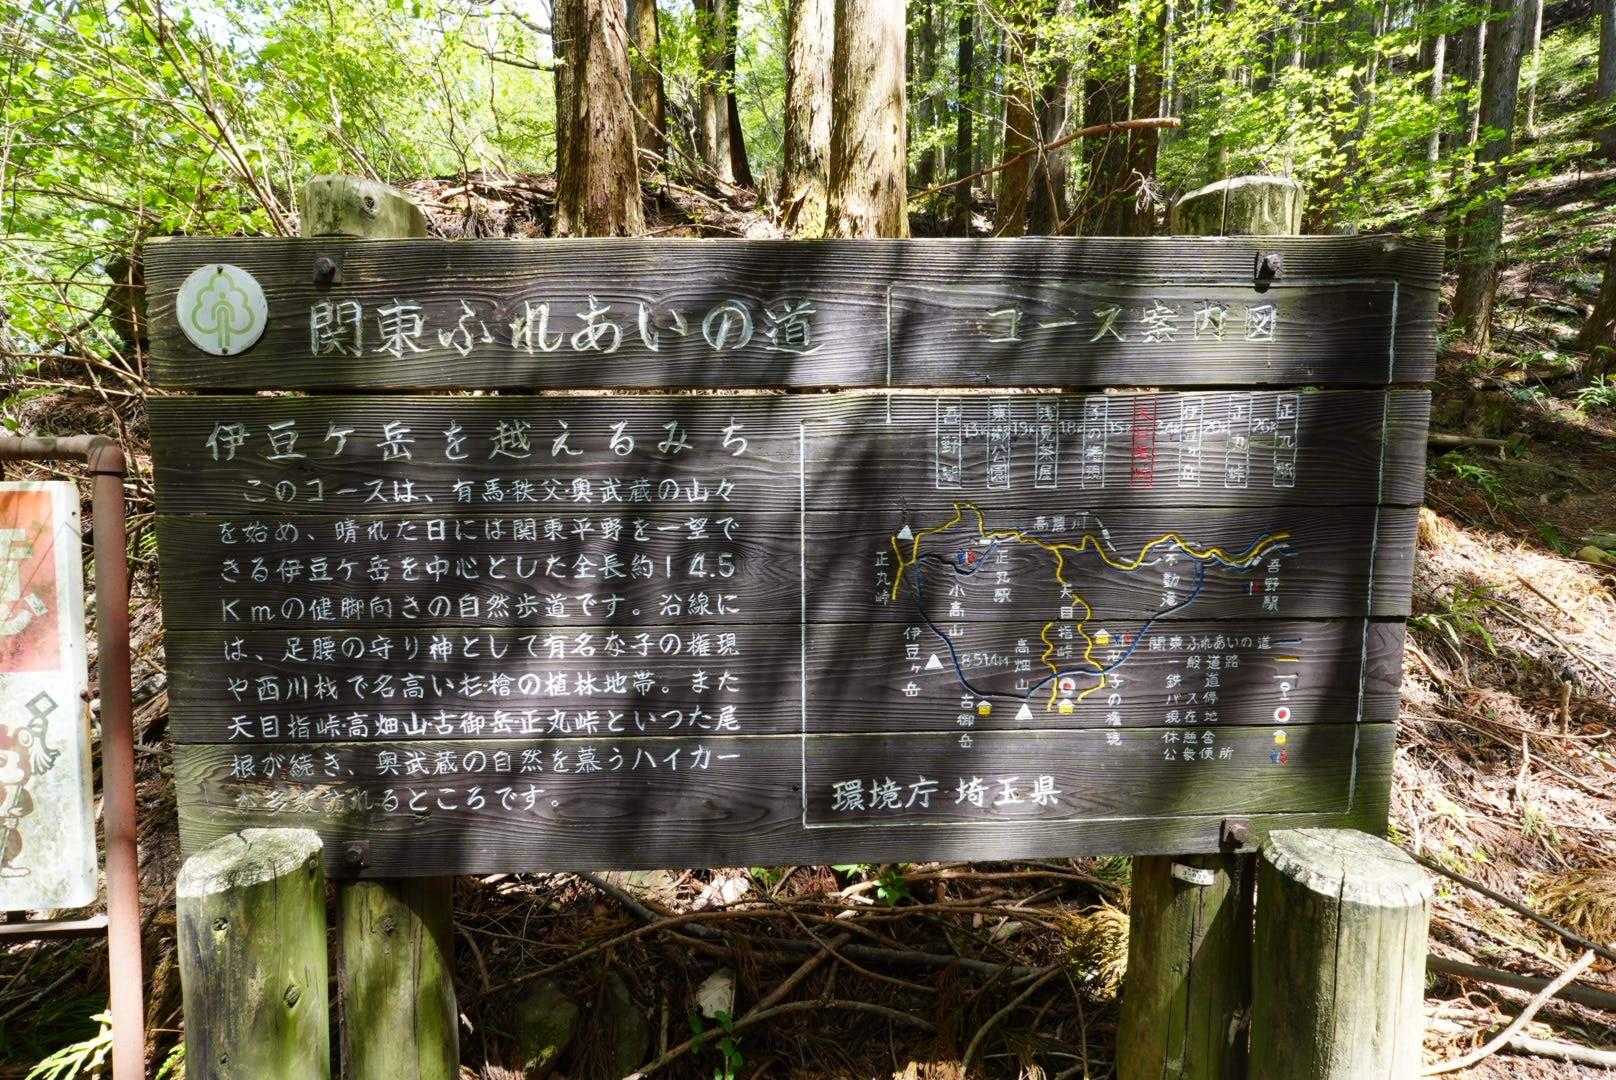 関東ふれあいの道
伊豆ケ岳を越えるみち
このコースは、有馬・秩父・奥武蔵の山々
を始め、晴れた日には関東平野を一望で
きる伊豆ケ岳を中心とした全長約14.5
Kmの健脚向きの自然歩道です。沿線に
は、足腰の守り神として有名な子の権現
や西川材で名高い杉・檜の植林地帯。また
天目指峠・高畑山・古御岳・正丸峠といつた尾
根が続き、奥武蔵の自然を慕うハイカー
るところです。
コース案内図
吾野駅
浅見茶屋
子の権現
伊豆ヶ岳
正丸峠
正丸駅
高麗川
正丸峠
正丸駅
小高山
天目指峠
不動滝
吾野駅
伊豆ヶ岳
851.4M
高畑山
古御岳
子の権現
関東ふれあいの道
一般道路
鉄道
バス停
現在地
休憩舎
公衆便所
環境庁 埼玉県